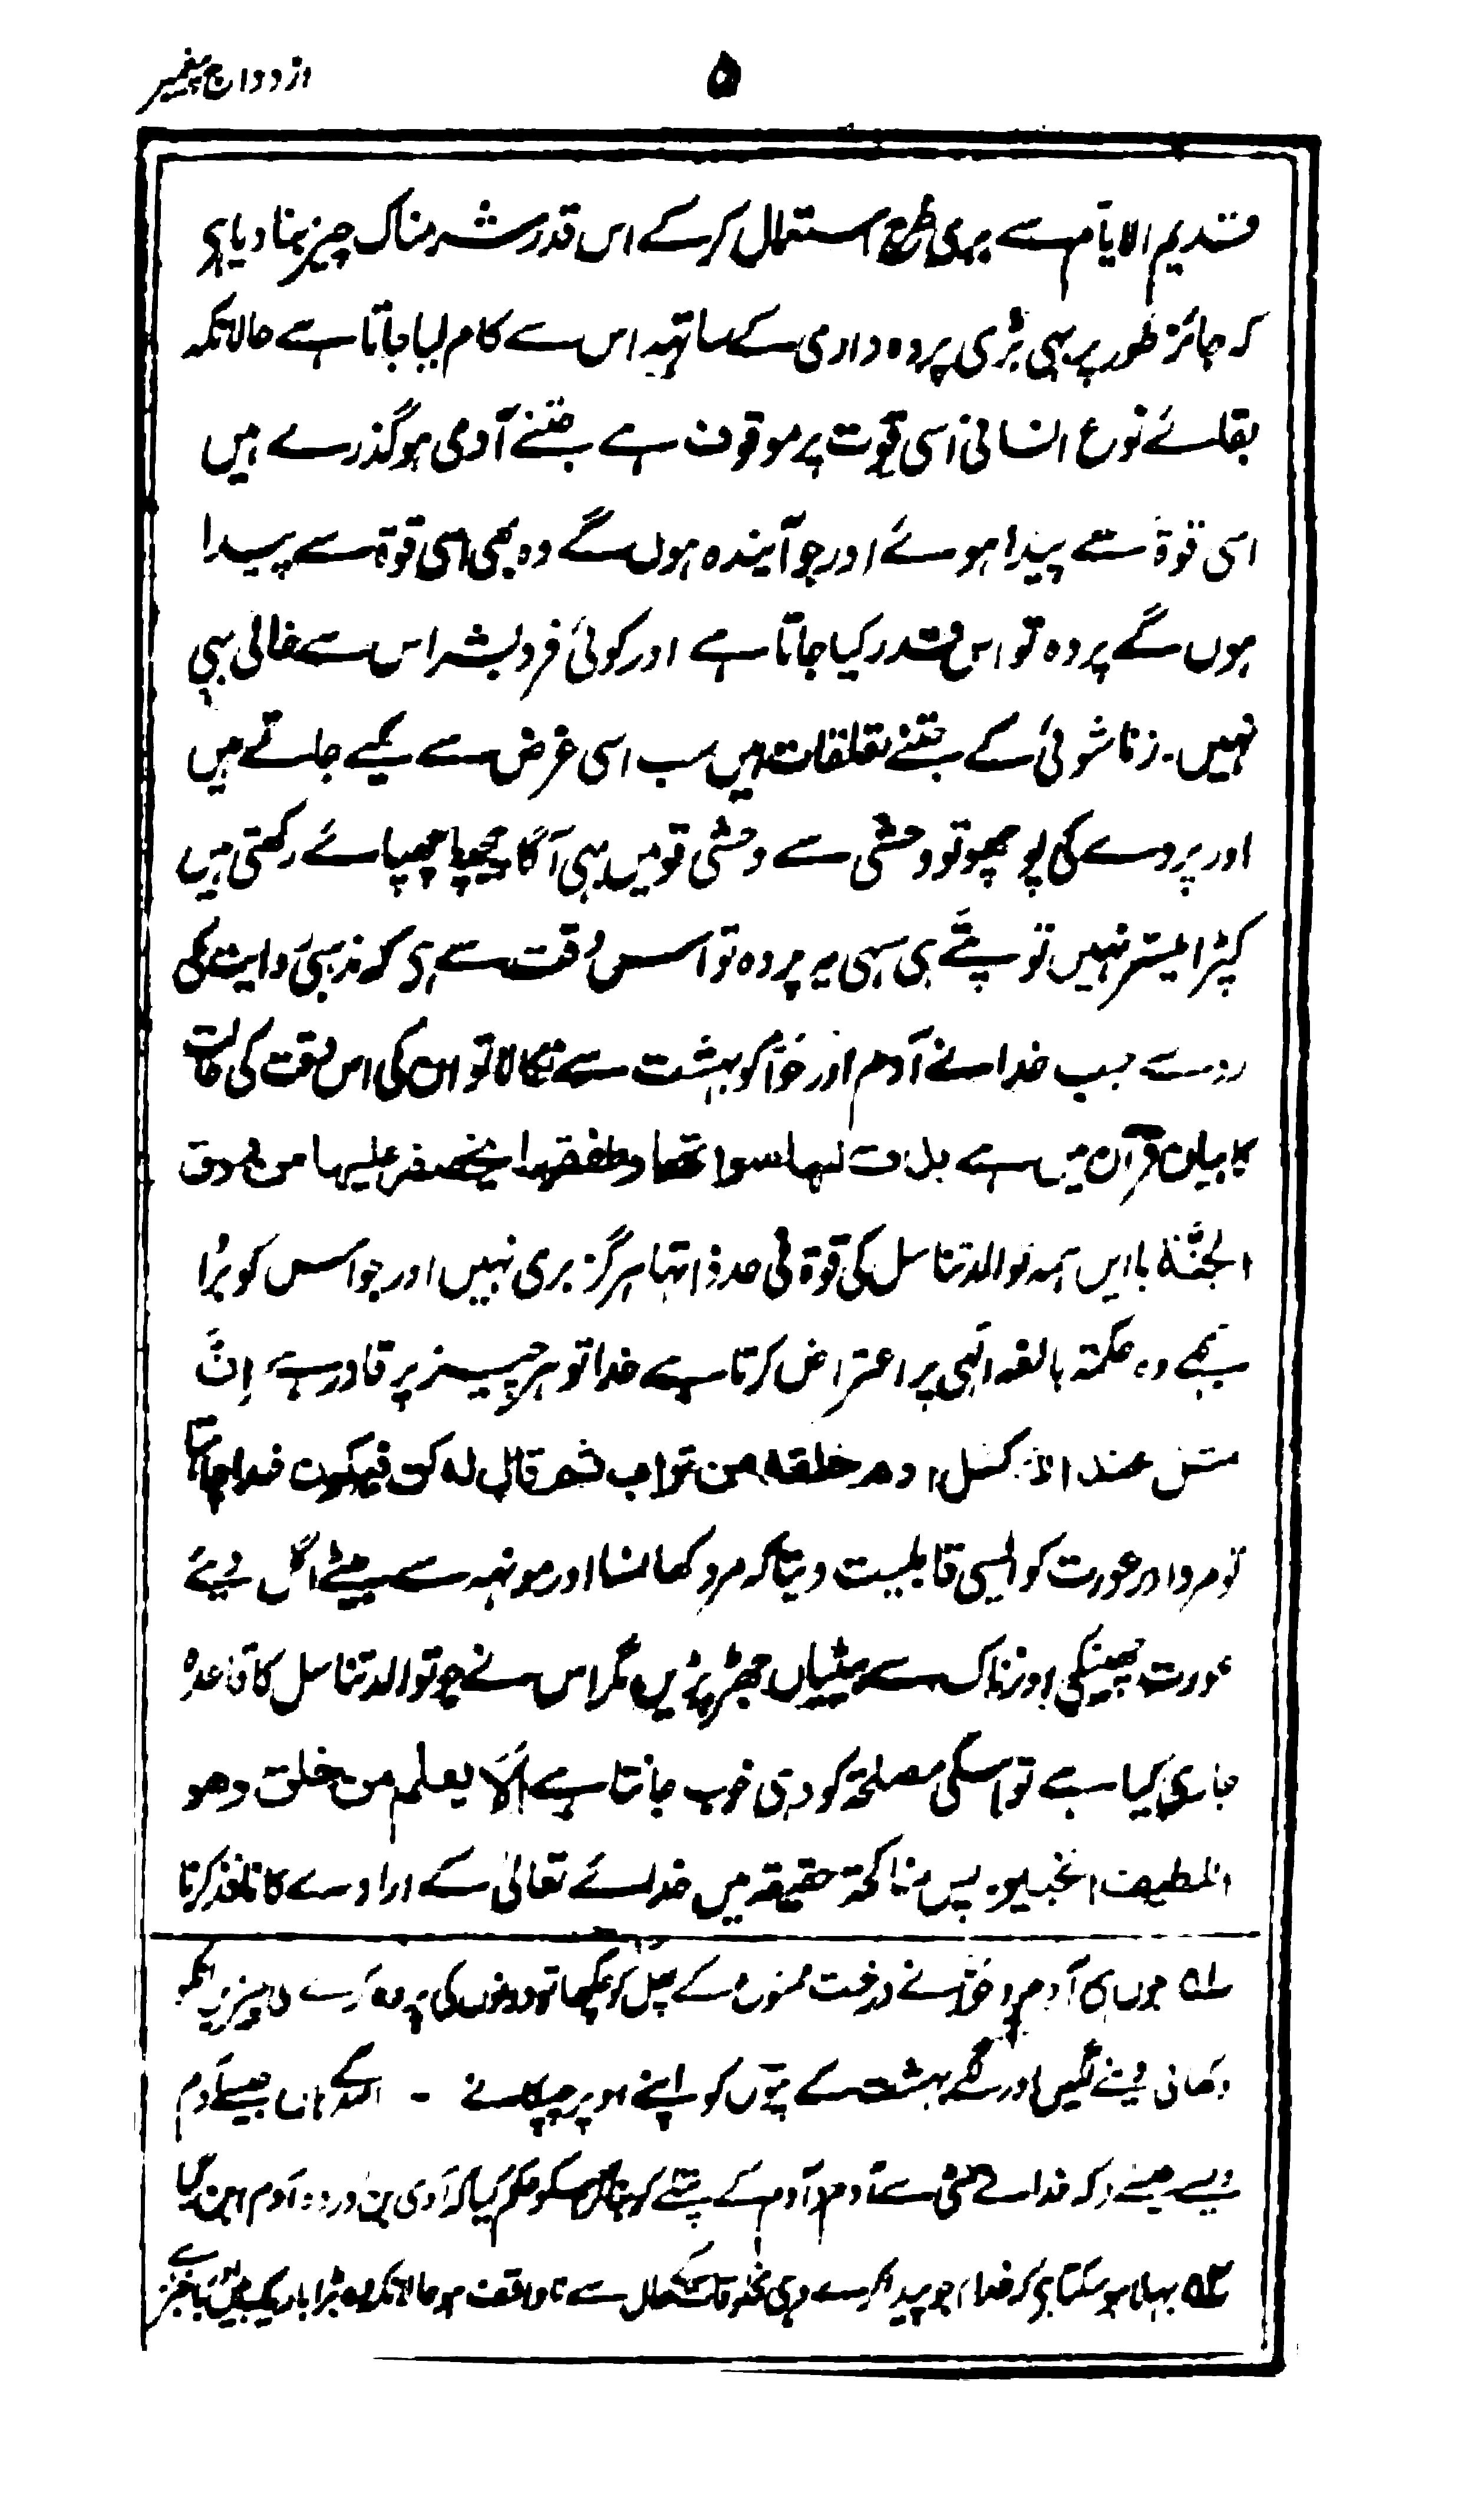 ۵
ازدواج پیغمبر
قدیم الایام سے بری طرح استعمال کرکے اس قدر شرمناک چیز بنا دیا ہی
کہ جائز طور پر بہی بڑی پردہ داری کے ساتہہ اس سے کام لیا جاتا ہے حالانکہ
بقائے نوع انسانی اسی قوت پر موقوف ہے جتنے آدمی ہو گذرے ہیں
اسی قوۃ سے پیدا ہوئے اور جو آیندہ ہوں گے وہ بھی اسی قوۃ سے پیدا
ہوں گے پردہ تو اس قدر کیا جاتا ہے اور کوئی فرد بشر اس سے خالی بہی
نہیں۔ زناشوئی کے جتنے تعلقات ہیں سب اسی غرض سے کیے جاتے ہیں
اور پردے کی پوچھو تو وحشی سے وحشی قومیں بہی آگا پیچھا چھپائے رکھتی ہیں
کپڑا میسر نہیں تو پتے ہی سہی یہ پردہ تو اس وقت سے ہی کہ مذہبی روایت کی
رو سے جب خدا نے آدم اور حوّا کو بہشت سے نکالا تو اس کی اس وقت کی حالت
کا بیان قرآن میں ہے بدت لہما سوا تھما وطفقہا یخصفن علیہما من ورق
الجنّۃ باایں ہمہ توالد تناسل کی قوۃ فی حد ذاتہا ہرگز بری نہیں اور جو اس کو بُرا
سمجھے وہ حکمۃ بالغہ الٰہی پر اعتراض کرتا ہے خدا تو ہر چیز پر قادر ہے اِنَّ
مثل عند اللہ کمثل ادم خلقہ من تراب ثم قال لہ کن فیکون خدا چاہتا
تو مرد اور عورت کو ایسی قابلیت دیتا کہ مرد کھانستا اور مونہہ سے بیٹے اگل دیئے
عورت چھینکی اور ناک سے بیٹیاں جھڑ پڑیں مگر اس نے جو توالد تناسل کا قاعدہ
جاری کیا ہے تو اسکی مصلحۃ کو وہی خوب جانتا ہے اَلَا یعلم من خلق وھو
اللطیف الخبیر۔ پس مناکحۃ حقیقۃ میں خدائے تعالیٰ کے ارادے کا نافذ کرنا
۱؎ جوں ہی آدم و حوّا نے درخت ممنوع کے پھل کو چکھا تو دونوں کی پردہ کرنے کی چیزیں انکو
دکھائی دینے لگیں اور لگے بہشت کے پتوں کو اپنے اوپر چپکانے - اللہ کے ہاں جیسے آدم
ویسے عیسے کہ خدا نے مٹی سے آدم کے پتلے کو بنا کر اسکو حکم کیا کہ آدمی بن اور وہ آدم بن گیا
۳؎ بہلا ہو سکتا ہی کہ خدا جو پیدا کرے وہی مخلوقات کے حال سے ناواقف ہو حالانکہ وہ بڑا باریک بیں باخبر ہے